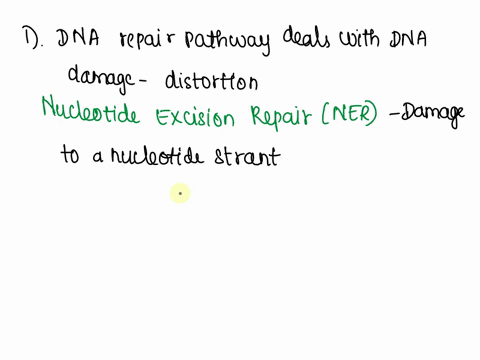 1). DNA repair pathway deals with DNA
damage - distortion
Nucleotide Excision Repair (NER) - Damage
to a nucleotide strant